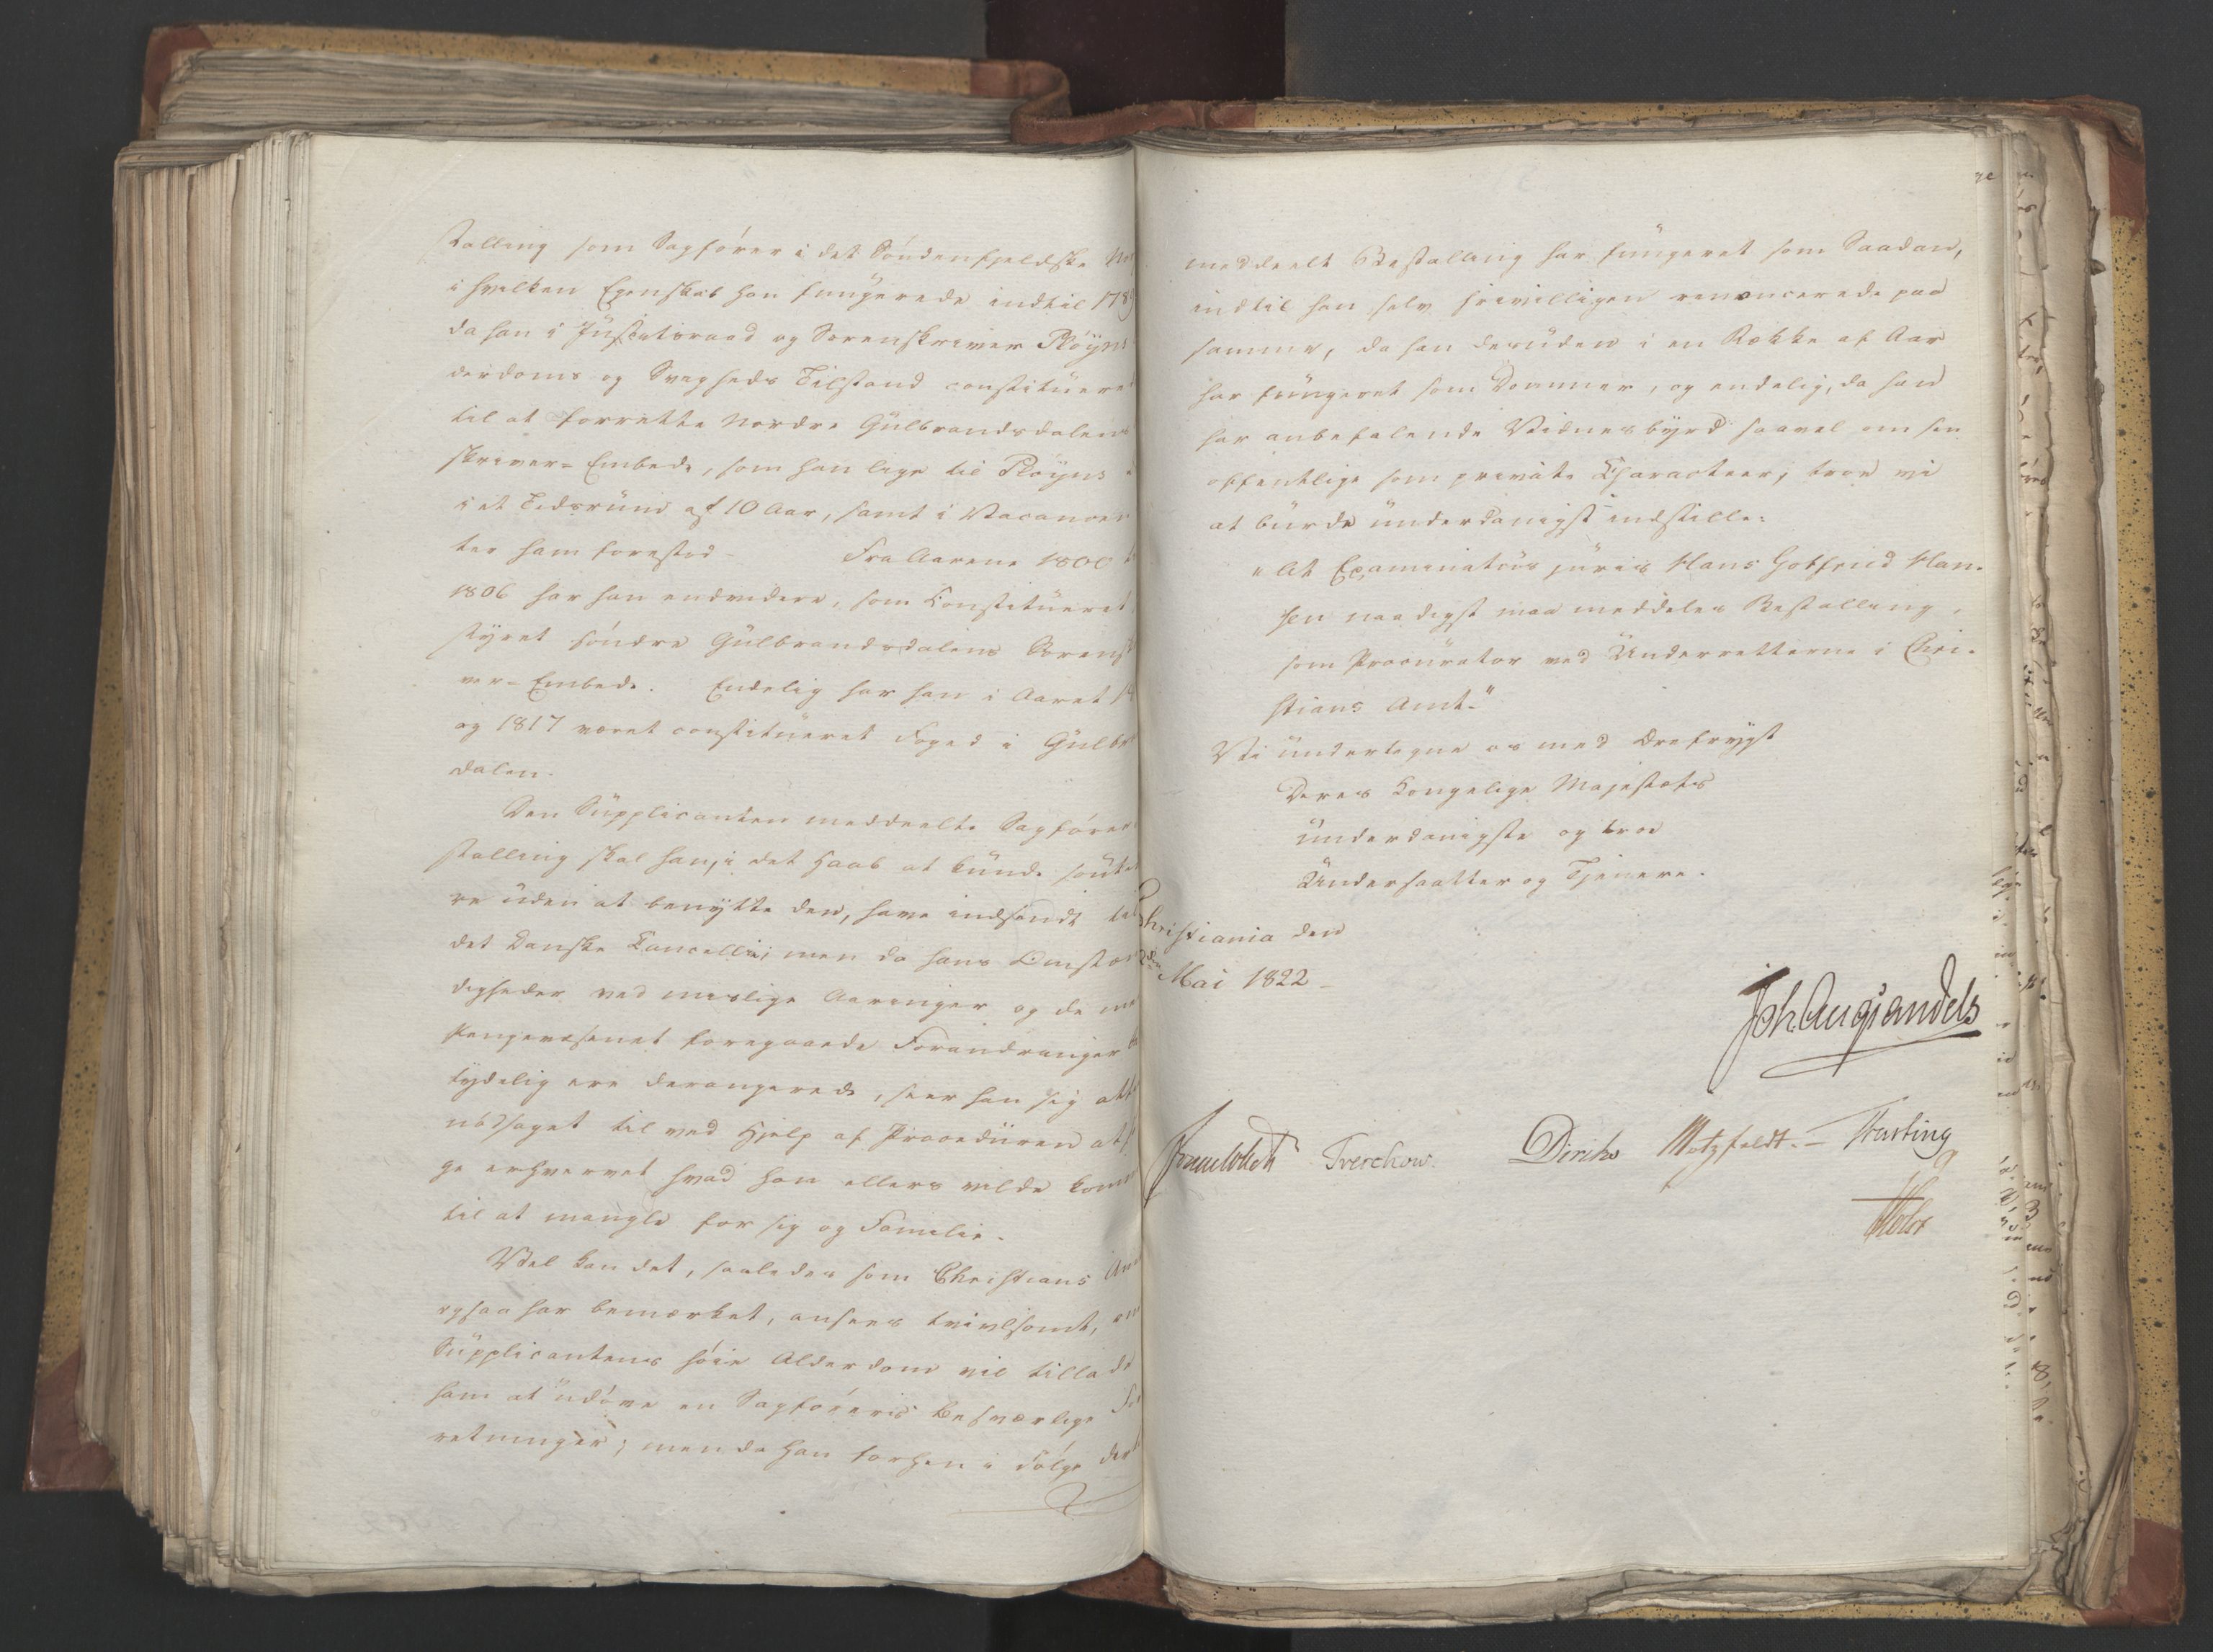 stalling som Sagförer i det Söndenfjeldske Nor
i hvilken Egenskab han fungerede indtil 1789
da han i Justitsraad og Sorenskriver Plöyns
derdoms og Svagheds Tilstand constituered
til at forrette Nordre Gulbrandsdalens
skriver-Embede, som han lige til Plöyns
i et Tidsrum af 10 Aar, samt i Vacancen
ter ham forestod - Fra Aarene 1800
1806 har han endvidere, som Constitueret
styret söndre Gulbrandsdalens Sorensk
ver-Embede. Endelig har han i Aaret
og 1817 været constitueret Foged i Gulbr
dalen.
Den Supplicanten meddeelte Sagförer
stalling skal han, i det Haab at kunde
re uden at benytte den, have indsendt til
det Danske Cancellie; men da hans Omstæn
digheder ved mislige Aaringer og de me
Pengevæsenet foregaaede Forandringer
tydelig ere derangerede, seer han sig at
nödsaget til ved Hjelp af Proceduren at
ge erhvervet hvad han ellers vilde kom
til at mangle for sig og Familie.
Vel kan det, saaledes som Christians Am
ogsaa har bemærket, ansees tvivlsomt, om
Supplicantens höie Alderdom vil tillade
ham at udöve en Sagförers besværlige For
retninger; men da han forhen i Fölge der
meddeelt Bestalling har fungeret som Saadan,
indtil han selv frivilligen renoncerede paa
samme, da han desuden i en Række af Aar
har fungeret som Dommer, og endelig, da han
har anbefalende Vidnesbyrd saavel om sin
offentlige som private Characteer; troe vi
at burde underdanigst indstille:
"At Examinatus juris Hans Gotfried Han-
sen naadigst maa meddeles Bestalling,
som Procurator ved Underretterne i Chri-
stians Amt."
Vi undertegne os med Ærefrygt
Deres Kongelige Majestæts
underdanigste og troe
Undersaatter og Tjenere.
Christiania den
2den Mai 1822 -
Joh. Aug Sandels
Sommerhielm Treschow. Diriks Motzfeldt. - Fasting
Holst